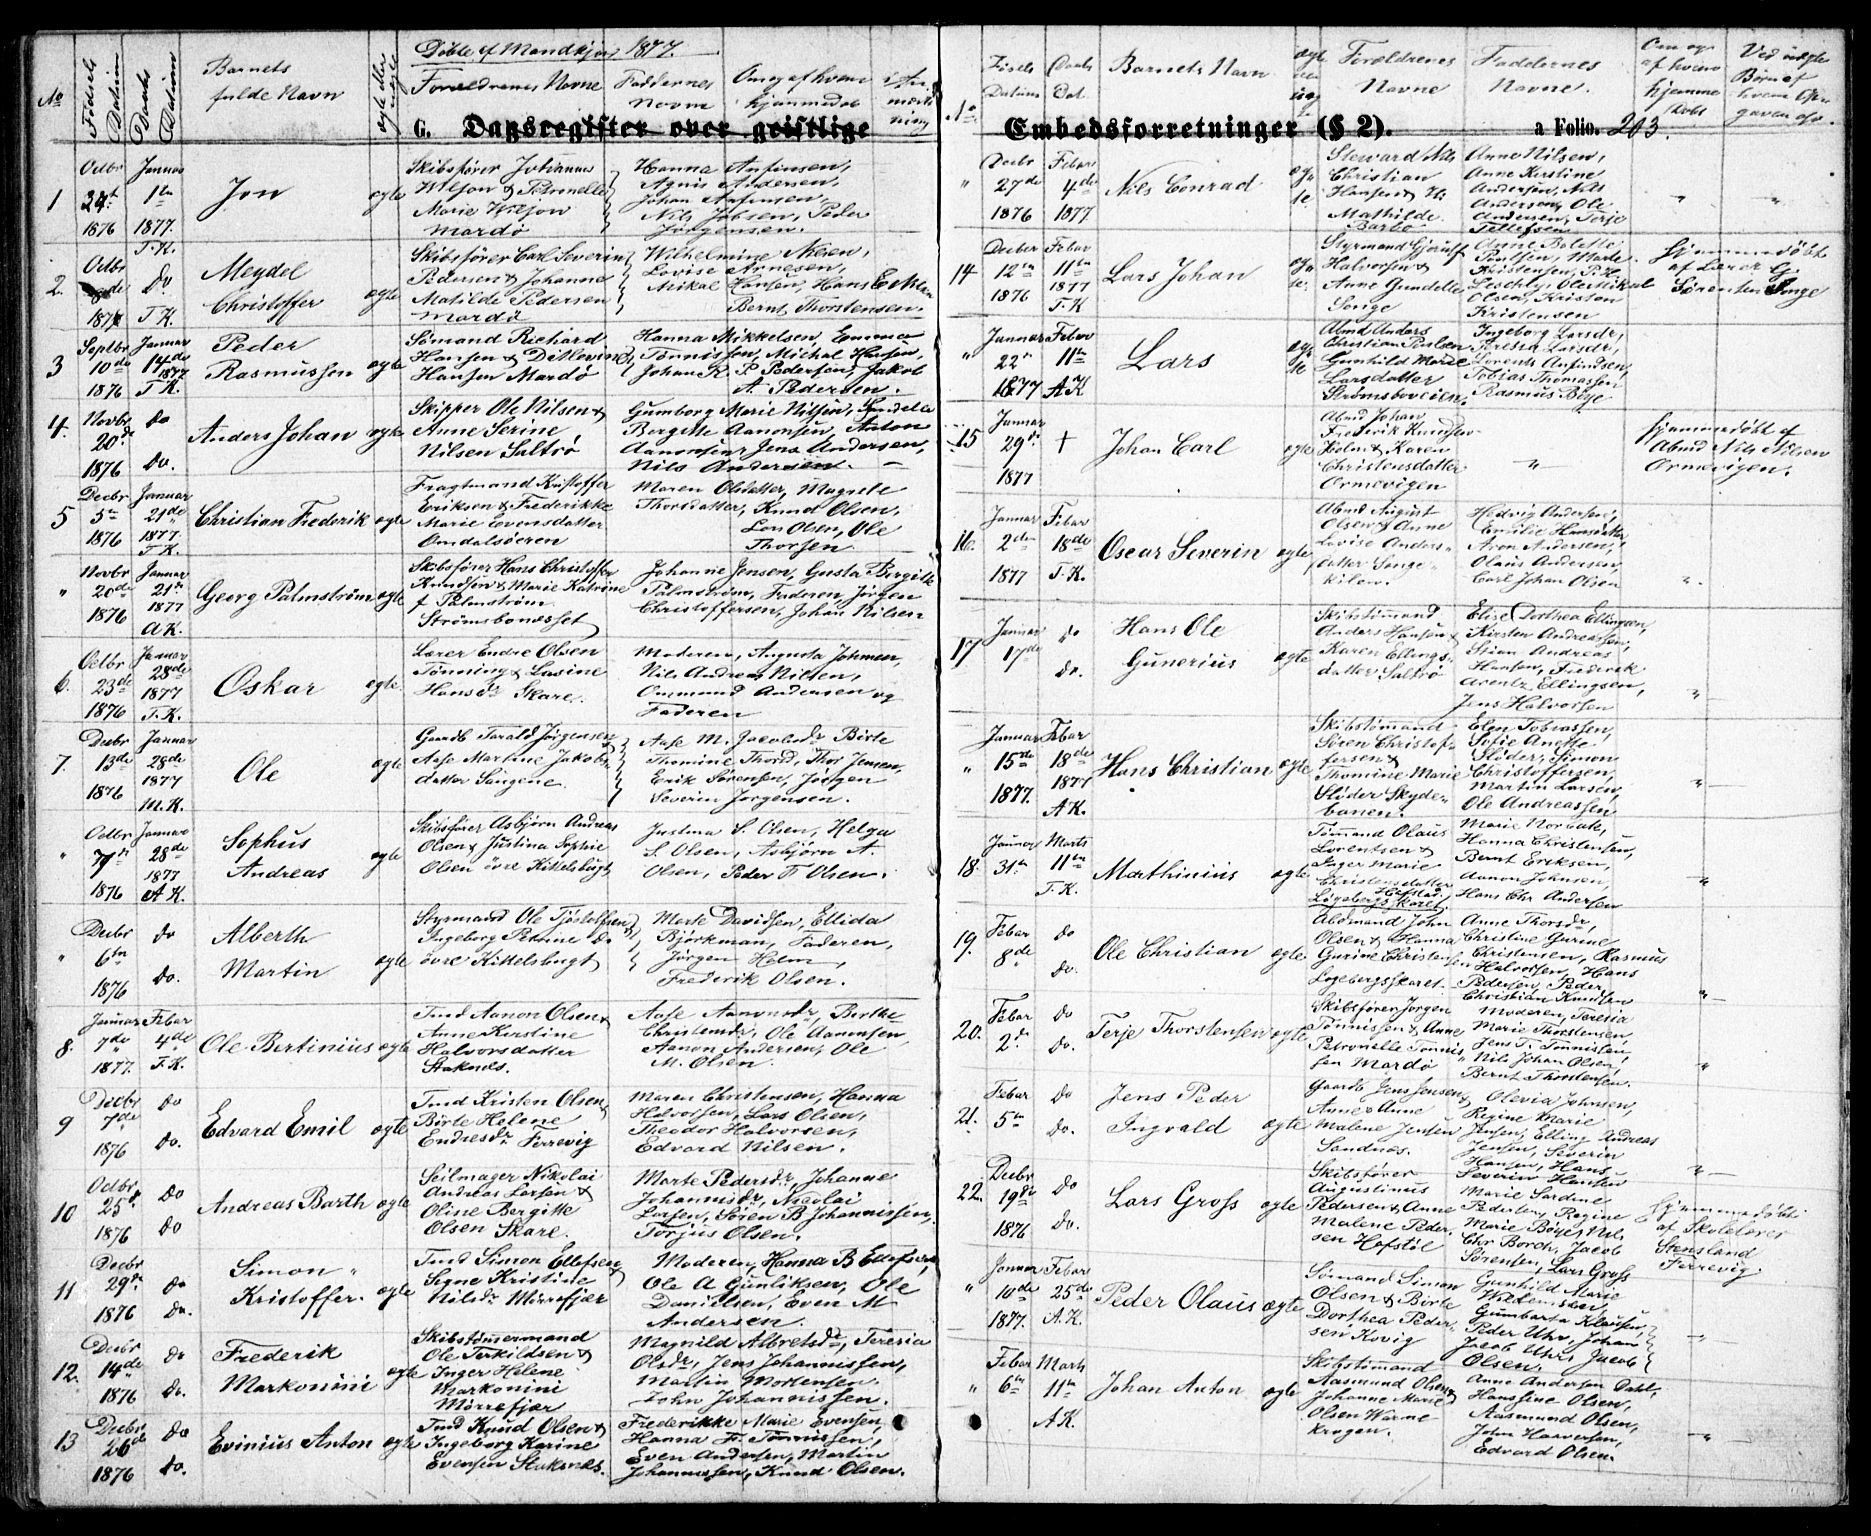 Døbte af Mandkjøn, 1877.
No
Fødsels Datum
Daabs Datum
Barnets fulde Navn
ægte eller uægte
Forældrenes Navne
Faddernes Navne
Om og af hvem hjemmedøb
Anmærkning
G. Dagsregister over geistlige
1
Octbr
1876
Januar
1te
1877.
T.K.
Jon
ægte
Skibsfører Johannes
Marie Wilson
Mardø
Hanna Anfinsen,
Agnis Andersen,
Johan Anfinsen,
Nils Jobsen, Peder
Jørgensen.
2.
Octbr
Do
T.K.
Meydel
Christoffer
ægte
Skibsfører Carl Severin
Pedersen & Johanne
Matilde Pedersen
Mardø
Wilhelmine Nilsen,
Lovise Arnesen,
Mikal Hansen, Hans
Bernt Thorstensen.
3
Septbr
10de
1876
Januar
14de
1877
T.K.
Peder
Rasmussen
ægte
Sømand Richard
Hansen & Ditlevine
Hansen Mardø
Hanna Mikkelsen, Emma
Tønnissen, Michal Hansen,
Johan R. P. Pedersen, Jakob
A. Pedersen.
4.
Novbr
20de
1876
Do
Do.
Anders Johan
ægte
Skipper Ole Nilsen &
Anne Serine
Nilsen Saltrø
Gumborg Marie Nilsen,
Bergitte Aanonsen, Anton
Aanonsen, Jens Andersen,
Nils Andersen. —
5
Decbr
5te
1876
Januar
21de
1877.
T.K.
Christian Frederik
ægte
Fragtmand Kristoffer
Eriksen & Frederikke
Marie Evensdatter
Omdalsøeren
Maren Olsdatter, Magnele
Thorsdatter, Knud Olsen,
Lars Olsen, Ole
Thorsen.
"
Novbr
20de
1876
Januar
21de
1877
A.K.
Georg Palmstrøm
ægte
Skibsfører Hans Christoffer
Knudsen & Marie Katrine
f Palmstrøm
Strømsbonesset
Johanne Jensen, Gusta Bergitte
Palmstrøm, Faderen, Jørgen
Christoffersen, Johan Nilsen
6.
Octbr
23de
1876
Januar
28de
1877
T.K.
Oskar
ægte
Lærer Endre Olsen
Tønning & Lasine
Hansdr Skare.
Moderen, Augusta Johnsen,
Nils Andreas Nilsen,
Ommund Andersen og
Faderen
7.
Decbr
13de
1876
Januar
28de
1877
M.K.
Ole
ægte
Gaardb Tarald Jørgensen
Aase Martine Jakobs
datter Songene
Aase M. Jacobsdr Birte
Thomine Thorsd, Thor Jensen,
Erik Sørensen, Jørgen
Severin Jørgensen.
"
Octbr
7de
1876
Januar
28de
1877
A.K.
Sophus
Andreas
ægte
Skibsfører Asbjørn Andreas
Olsen & Justina Sophie
Olsen øvre Kittelsbugt
Justina S. Olsen, Helga
S. Olsen, Asbjørn A.
Olsen, Peder T. Olsen.
"
Decbr
6te
1876
Do
Do.
Alberth
Martin
ægte
Styrmand Ole Tjøstolfsen &
Ingeborg Petrine Do
øvre Kittelsbugt
Marte Davidsen, Ellida
Björkman, Faderen,
Jørgen Holm,
Frederik Olsen.
8.
Januar
7de
1877.
Febar
4de
T.K.
Ole Bertinius
ægte
Tmd Aanon Olsen &
Anne Kirstine
Halvorsdatter
Staknes.
Aase Aanonsdr, Birthe
Christensdr, Ole Aanonsen
Aanon Andersen, Ole
M. Olsen
9
Decbr
7de
1876
Do
Do.
Edvard Emil
ægte
Tmd Kristen Olsen &
Børte Helene
Endresdr Ferrevig
Maren Christensen, Hanna
Halvorsen, Lars Olsen,
Theodor Halvorsen,
Edvard Nilsen.
10
Octbr
25de
1876
Do
Do
Andreas Barth
ægte
Seilmager Nikolai
Andreas Larsen &
Oline Bergitte
Olsen Skare.
Marte Pedersdr, Johanne
Johannisdr, Nicolai
Larsen, Søren B Johannissen,
Torjus Olsen.
11
Decbr
29de
1876
Do
Do.
Simon
Kristoffer
ægte
Tmd Simon Ellefsen &
Signe Kristine
Nilsdr Mørrefjær
Moderen, Hanna B Ellefsen,
Ole A Gunliksen, Ole
Danielsen, Even M
Andersen.
12.
Decbr
14de
1876
Do
Do.
Frederik
Markonini
ægte
Skibstømmermand
Ole Terkildsen &
Inger Helene
Markonini
Mørrefjær
Magnild Albretsdr, Teresia
Olsdr, Jens Johannissen,
Martin Mortensen.
John Johannissen.
13
Decbr
26de
1876
Do
Do.
Evinius Anton
ægte
Tmd Knud Olsen &
Ingeborg Karine
Evensen Staksnes.
Frederikke Marie Evensen,
Hanna F. Tønnissen,
Even Andersen, Martin
Johannessen, Knud Olsen.
No
Føsels Datum
Daabs Dat.
Barnets Navn
Forældrenes Navne
Faddernes Navne.
Om og af hvem hjemmedøbt
Ved uægte Børn af hvem Opgaven
Embedsforretninger (§ 2).
a Folio. 203.
"
Decbr
27de
1876
Febar
4de
1877
Nils Conrad
ægte
Steward Nils
Christian
Hansen &
Mathilde
Barbo
Anne Nilsen,
Anne Kirstine
Andersen, Nils
Andersen, Ole
Andersen, Terje
Tellefsen
14
Decber
12te
1876
Febar
11te
1877
T.K
Lars Johan
ægte
Styrmand
Halvorsen &
Anne Gundelle
Songe
Anne Bolette
Paulsen, Marte
Kristensen,
Olsen, Kristen
Kristensen
Hjemmedøbt
af Lærer G.
Sørensen Songe
"
Januar
22
1877
Febar
11te
A.K
Lars
ægte
Abmd Anders
Christian Poulsen
Gunhild Marie
Larsdatter
Strømsboveien
Ingeborg Larsdr,
Teresia Larsdr,
Lorents Anfindsen,
Tobias Thomassen
Rasmus Bøye
15
Januar
29de
1877
+
Johan Carl
ægte
Abmd Johan
Frederik
Holm & Karen
Christensdatter
Ormevigen
Hjemmedøbt af
Abmd Nils Nilsen
Ormevigen.
16.
Januar
2den
1877
Febar
18de
T.K.
Oscar Severin
ægte
Abmd August
Olsen & Anne
Lovise Anders
datter Songe
kilen.
Hedvig Andersen,
Emilie Hansdatter,
Aron Andersen,
Olaus Andersen
Carl Johan Olsen
17
Januar
17de
Do
Do.
Hans Ole
Gunerius
ægte
Skibstømmand
Anders Hansen &
Karen Ellings
datter Saltrø
Elise Dorthea Ellingsen,
Kirsten Andreassen,
Stian Andreas
Hansen, Frederik
Arentz Ellingsen,
Jens Halvorsen
"
Januar
15de
1877.
Febar
18de
1877
A.K.
Hans Christian
ægte
Skibstømmand
Søren Christof
fersen &
Thomine Marie
Sløder Skyde
banen.
Elen Tobiassen,
Sofie Anette
Sløder, Simon
Christoffersen,
Martin Larsen,
Ole Andreassen
18.
Januar
31te
Marts
11te
T.K.
Mathinius
ægte
Tømmand Olaus
Lorentsen &
Inger Marie
Christensdatter
Løgebergs Skaret
Marie
Hanna Christensen,
Bernt Eriksen,
Aanon Johnsen,
Hans Chr Andersen
19.
Febar
8de
Do
Do.
Ole Christian
ægte
Abdmand John
Olsen & Hanna
Gurine Christensen
Løgebergsskaret.
Anne Thorsdr,
Christine Gurine
Christensen, Rasmus
Halvorsen, Hans
Pedersen, Peder
Christian Knudsen
20.
Febar
2de
Do
Do.
Terje Thorstensen
ægte
Skibsfører Jørgen
Tønnissen & Anne
Petronelle Tønnis
sen Mardø
Moderen, Teresia
Marie Thorstensen,
Jens T. Tønnissen,
Nils Johan Olsen,
Bernt Thorstensen.
21.
Febar
5te
Do
Do.
Jens Peder
Ingvald
ægte
Gaardb Jens Jensen &
Anne Anne
Malene Jensen
Sandnæs.
Olevia Johnsen,
Regine Marie
Jensen, Elling Andreas
Jensen, Severin
Hansen, Hans
Severin Hansen
22.
Decbr
19de
1876
Do
Do.
Lars Gross
ægte
Skibsfører
Augustinus
Pedersen & Anne
Malene Peder
sen Hofstøl
Marie Sardine
Pedersen, Regine
Marie Bøye, Nil.
Chr Borch, Jacob
Sørensen, Lars Gross
Hjemmedøbt
af Skolelærer
Stensland
Ferrevig.
"
Januar
10de
1877.
Febar
25de
A.K.
Peder Olaus
ægte
Sømand Simon
Olsen & Børte
Dorthea Peder
sen Kovig
Gunhild Marie
Willemsen,
Gumbarta Klausen,
Peder Uhr, Johan
Jacob Uhr, Jacob
Olsen.
"
Febar
6te
Marts
11te
A.K.
Johan Anton
ægte
Skibstømmand
Aasmund Olsen &
Johanne Marie
Olsen Warne
krogen.
Anne Andersen Dahl,
Hansine Olsen,
Aasmund Olsen,
John Halvorsen,
Edvard Olsen.